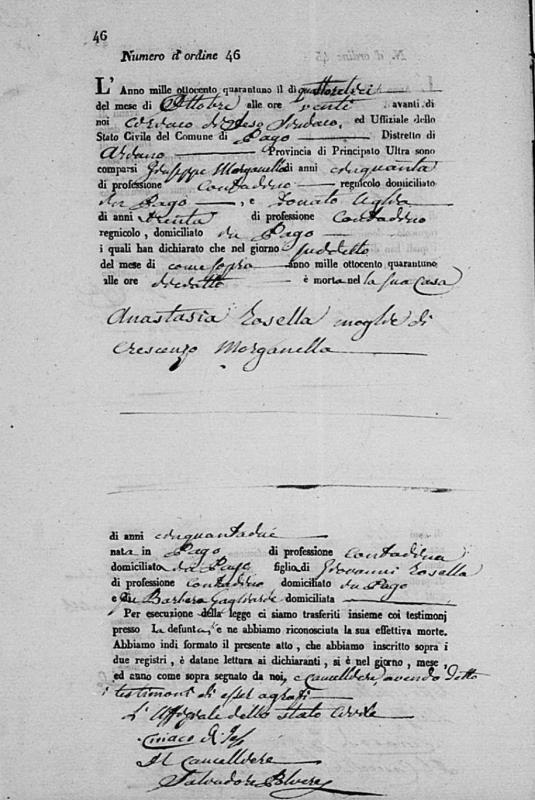 46
Numero d'ordine 46
L' Anno mille ottocento quarantuno il dì quattordici
del mese di Ottobre alle ore venti avanti di
noi Ciriaco de Sindaco, ed Uffiziale dello
Stato Civile del Comune di Pago Distretto di
Provincia di Principato Ultra sono
comparsi Giuseppe Morganella di anni cinquanta
di professione Contadino regnicolo domiciliato
in Pago, e Donato
di anni trenta di professione Contadino
regnicolo, domiciliato in Pago
i quali han dichiarato che nel giorno suddetto
del mese di come sopra anno mille ottocento quarantuno
alle ore è morta nel la sua casa
Anastasia Rosella moglie di
Crescenzo Morganella
di anni cinquantadue
nata in Pago di professione contadina
domiciliata in Pago figlia di Giovanni Rosella
di professione contadino domiciliato in Pago
e di Barbara Gagliarde domiciliata
Per esecuzione della legge ci siamo trasferiti insieme coi testimonj
presso La defunta e ne abbiamo riconosciuta la sua effettiva morte.
Abbiamo indi formato il presente atto, che abbiamo inscritto sopra i
due registri, è datane lettura ai dichiaranti, si è nel giorno, mese,
ed anno come sopra segnato da noi, e cancelliere, avendo detto
i testimoni di esser
L'Uffiziale dello stato civile
Ciriaco de
Il Cancelliere
Salvadore